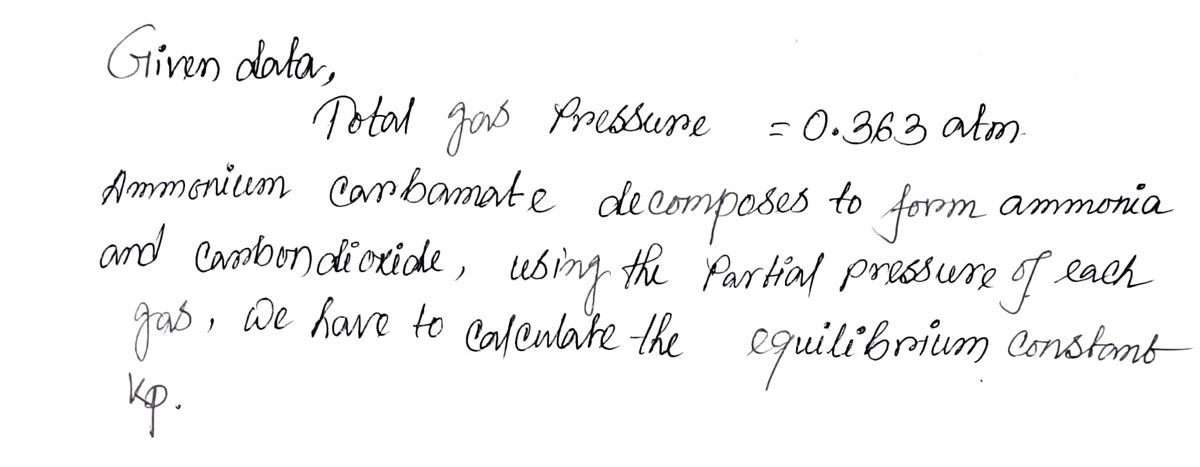 Given data,
Total gas Pressure = 0.363 atm.
Ammonium carbamate decomposes to form ammonia
and Carbondioxide, using the Partial pressure of each
gas, We have to calculate the equilibrium Constant
Kp.